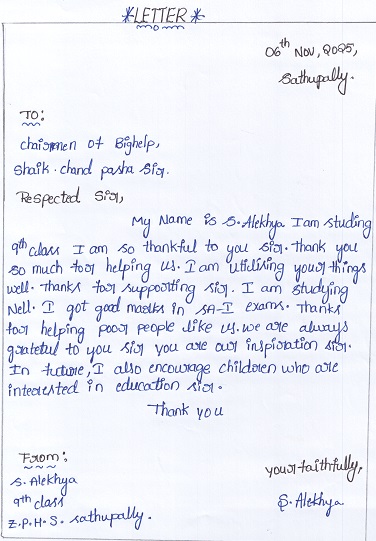 *LETTER*
06th Nov, 2025,
Sathupally.
To:
chairmen of Bighelp,
Shaik. chand pasha Sir.
Respected Sir,
My Name is S. Alekhya I am studing
9th class I am so thankful to you sir. thank you
so much for helping us. I am utilising your things
well. thanks for supporting sir. I am studying
Nell. I got good marks in SA-I exams. Thanks
for helping poor people like us. we are always
grateful to you sir you are our inspiration sir.
In future, I also encourage children who are
interested in education sir.
Thank you
From:
S. Alekhya
9th class
Z.P.H.S. Sathupally.
your faithfully,
S. Alekhya